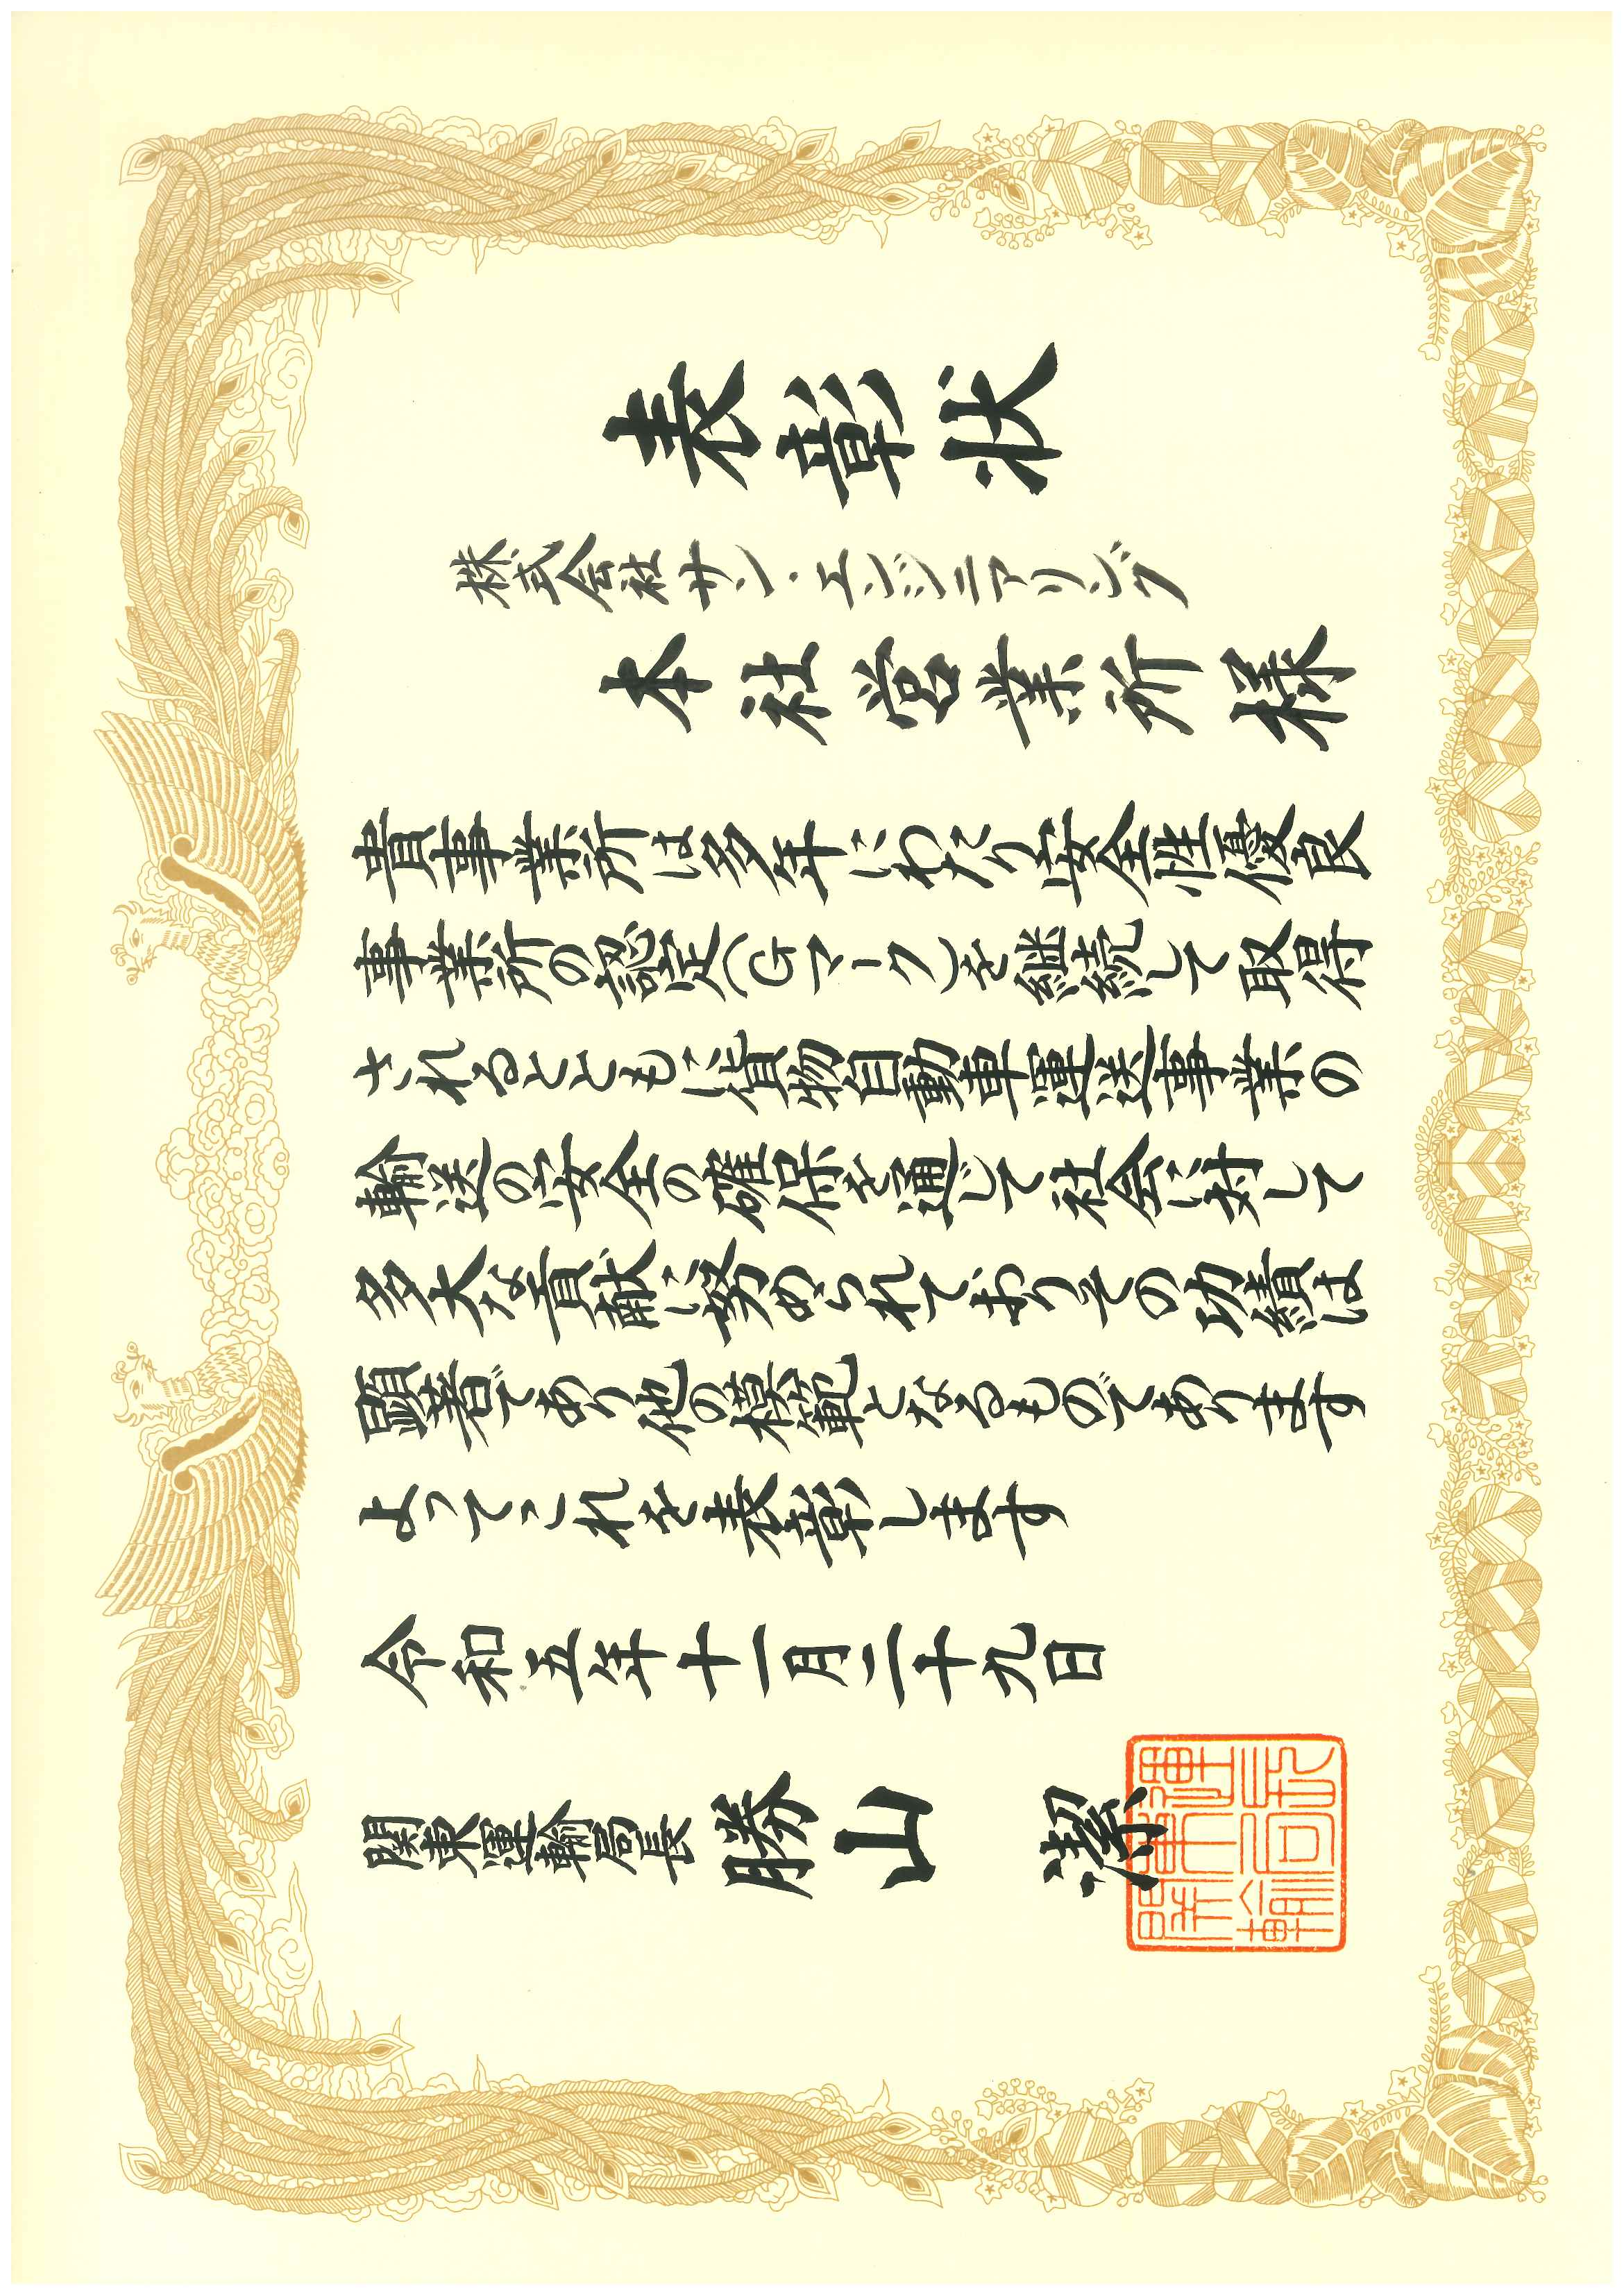 表彰状
株式会社サン・エンジニアリング
本社営業所様
貴事業所は多年にわたり安全性優良
事業所の認定(Gマーク)を継続して取得
されるとともに貨物自動車運送事業の
輸送の安全の確保を通じて社会に対して
多大な貢献に努められておりその功績は
顕著であり他の模範となるものであります
よってこれを表彰します
令和五年十一月二十九日
関東運輸局長 勝山 潔
関東運輸局長印